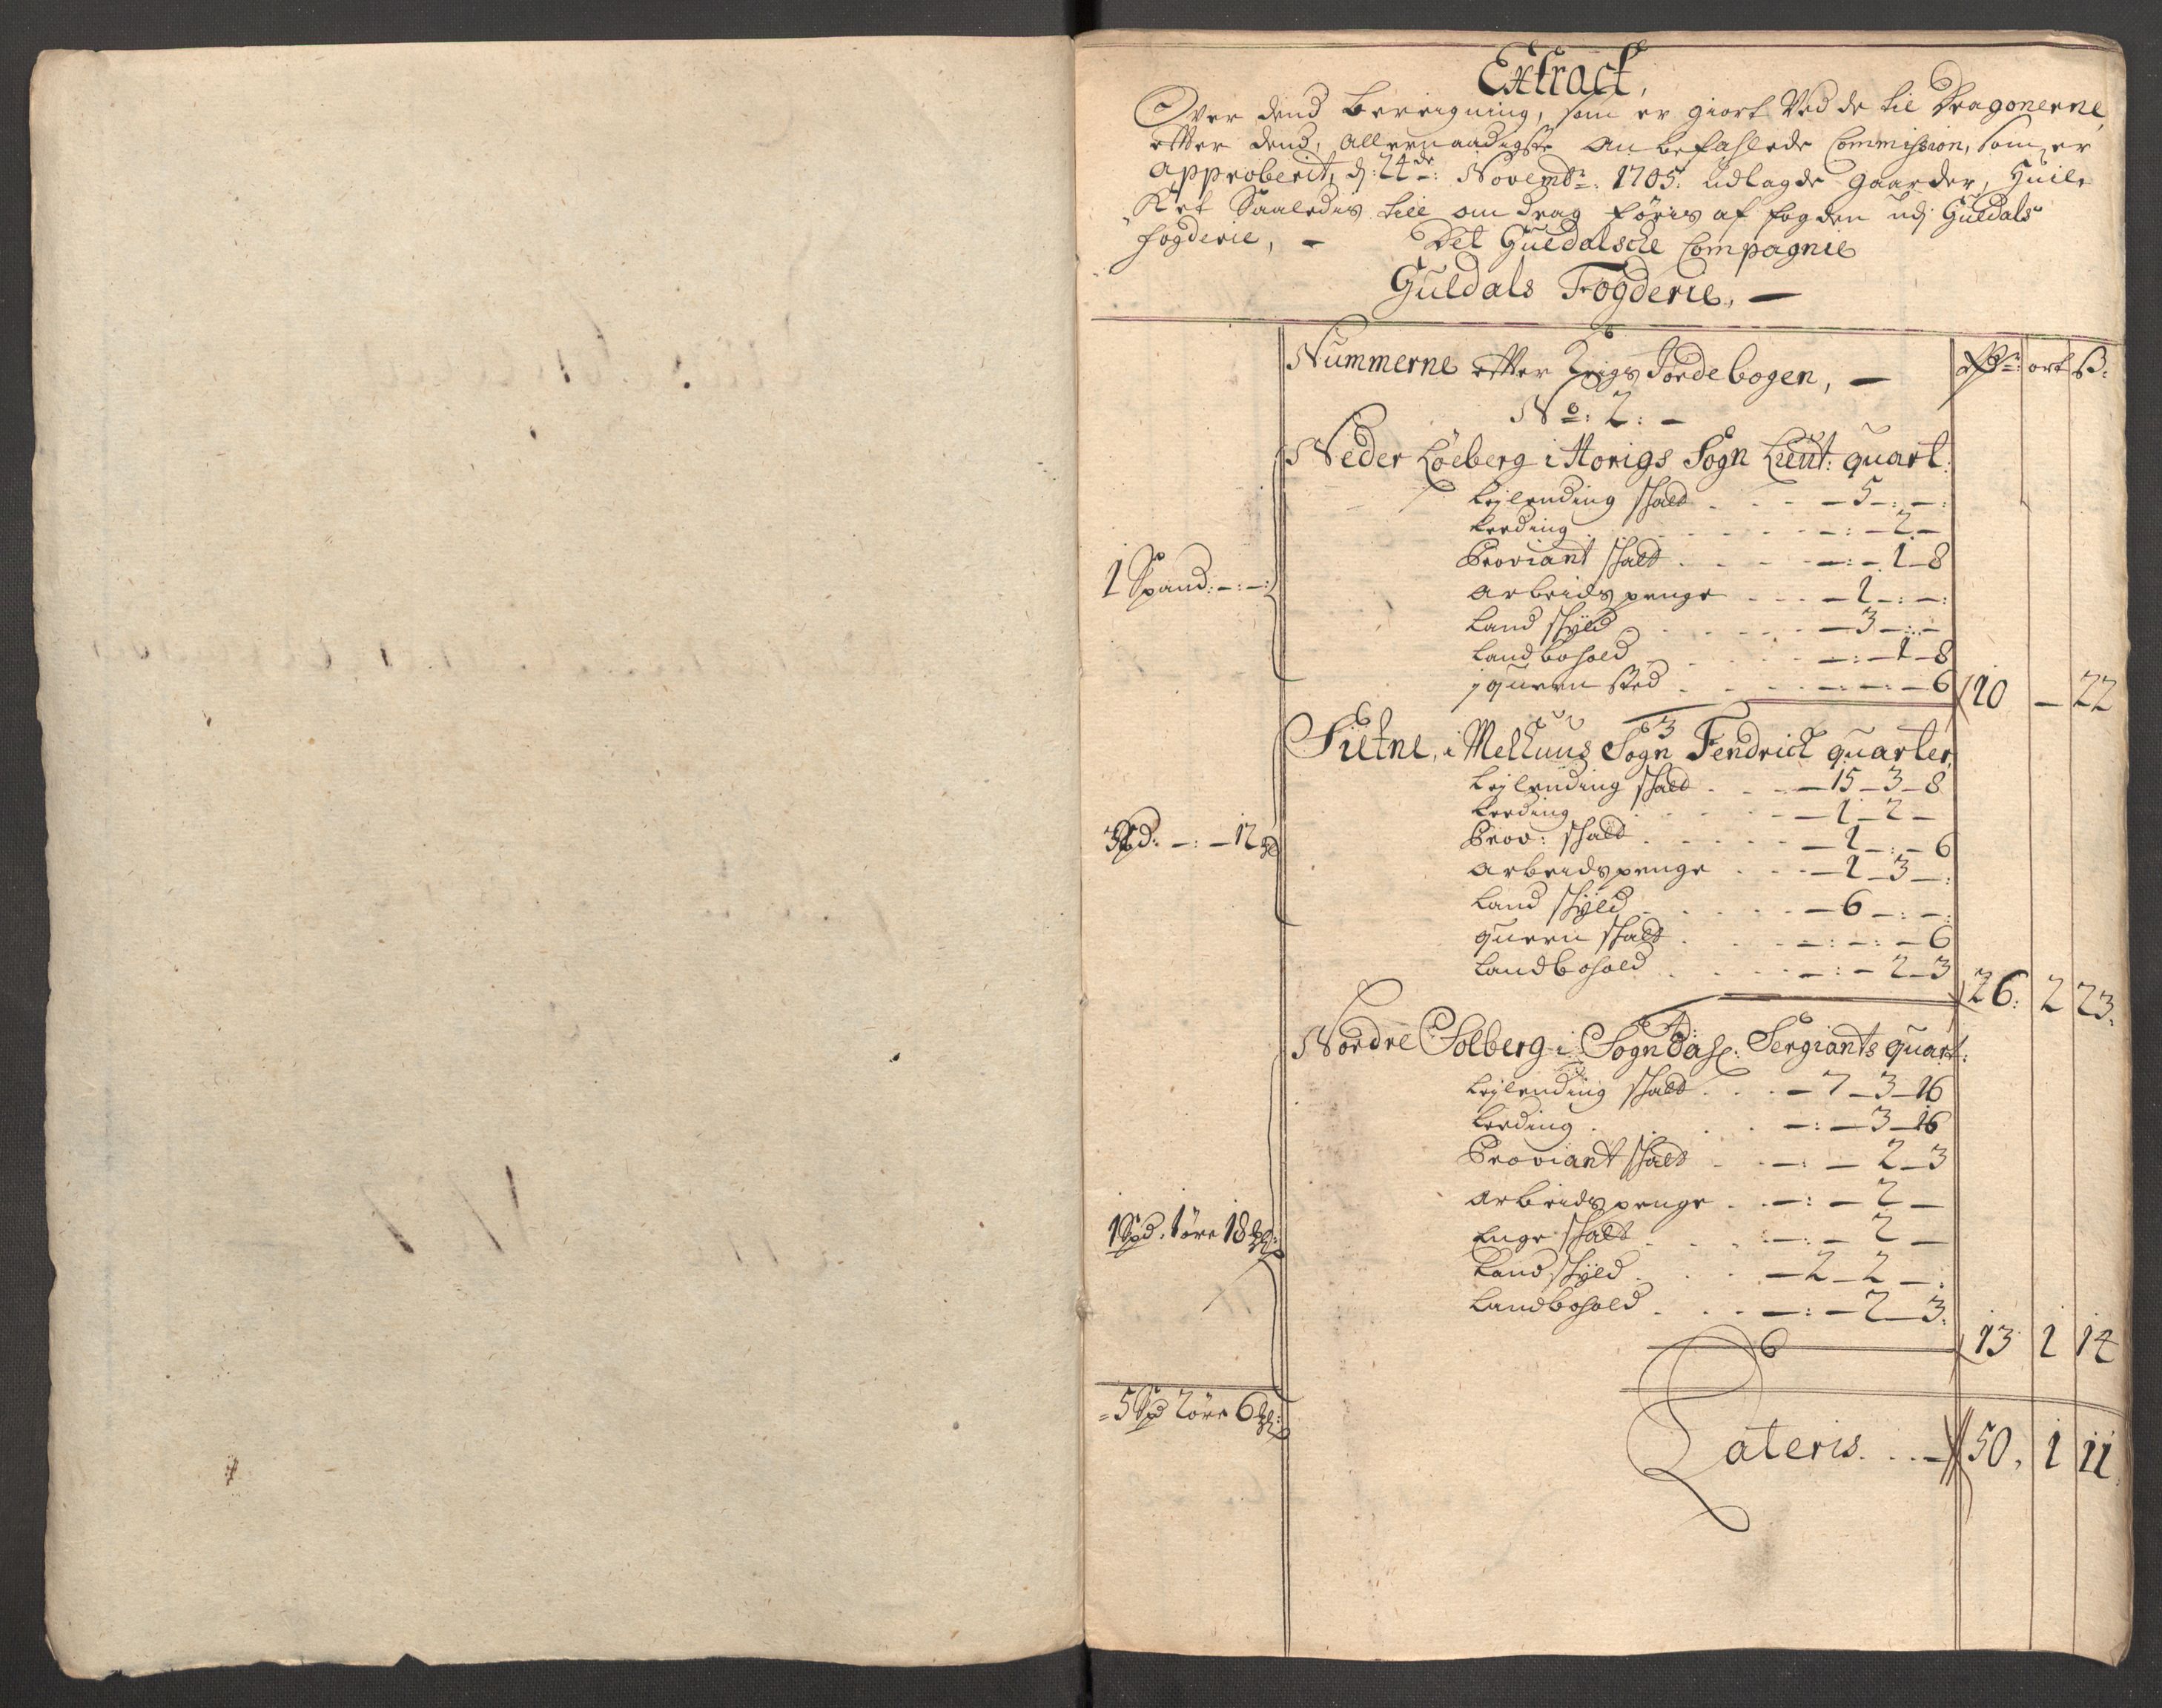 Extract,
Over dend beregning, som er giort Ved de til Dragonerne,
etter dend, allernaadigste anbefahlede Commission, som er
approberit, d: 24de: Novembr: 1705. udlagde gaarder, Huil-
ket Saaledis till omdrag føris af fogden udj Guldals
fogderie, - Det Guldalsche Compagnie
Guldals Fogderie, -
Nummerne etter Krigs Jordebogen, - ort ß:
No: 2: -
Neder Løeberg i Horigs Sogn Lieut: quart:
Lejlending skatt . . - 5 - : - :
Leeding . . . - : - 2 -
Proviant skatt . . . - : - 1 - 8
1 Spand : - : - :
arbeids penge . . - 1 - : - :
Land skyld . . . - 3 - : -
Landbohold . . . - : - 1 - 8
j quern sted . . . - : - : - 6 10 - 22
3
Sletne, i Melhuus Sogn Fendrick quarter
Lejlending skatt . . - 15 - 3 - 8
Leeding . . . - 1 - 2 -
3 Spd: - : - 12
Prov: skatt . . . - 1 - : - 6
arbeidspenge . . . - 1 - 3 - :
Land skyld . . . - 6 - : - :
quern skatt . . . - : - : - 6
Landbohold . . . - : - 2 - 3 26: 2 23.
4:
Nordre Solberg i Sogndahl: Sergiants quart:
Lejlending skatt . . . - 7 - 3 - 16
Leeding . . . - : - 3 - 16
Proviant skatt . . - : - 2 - 3
arbeids penge . . - : - 2 -
1 Spd. 1 øre 18
Enge skatt . . . - : - 2 -
Land skyld . . . - 2 - 2 - :
Landbohold . . . - : - 2 - 3. 13 1 14
= 5 Spd 2 øre 6
Lateris . . . - 50, 1 11